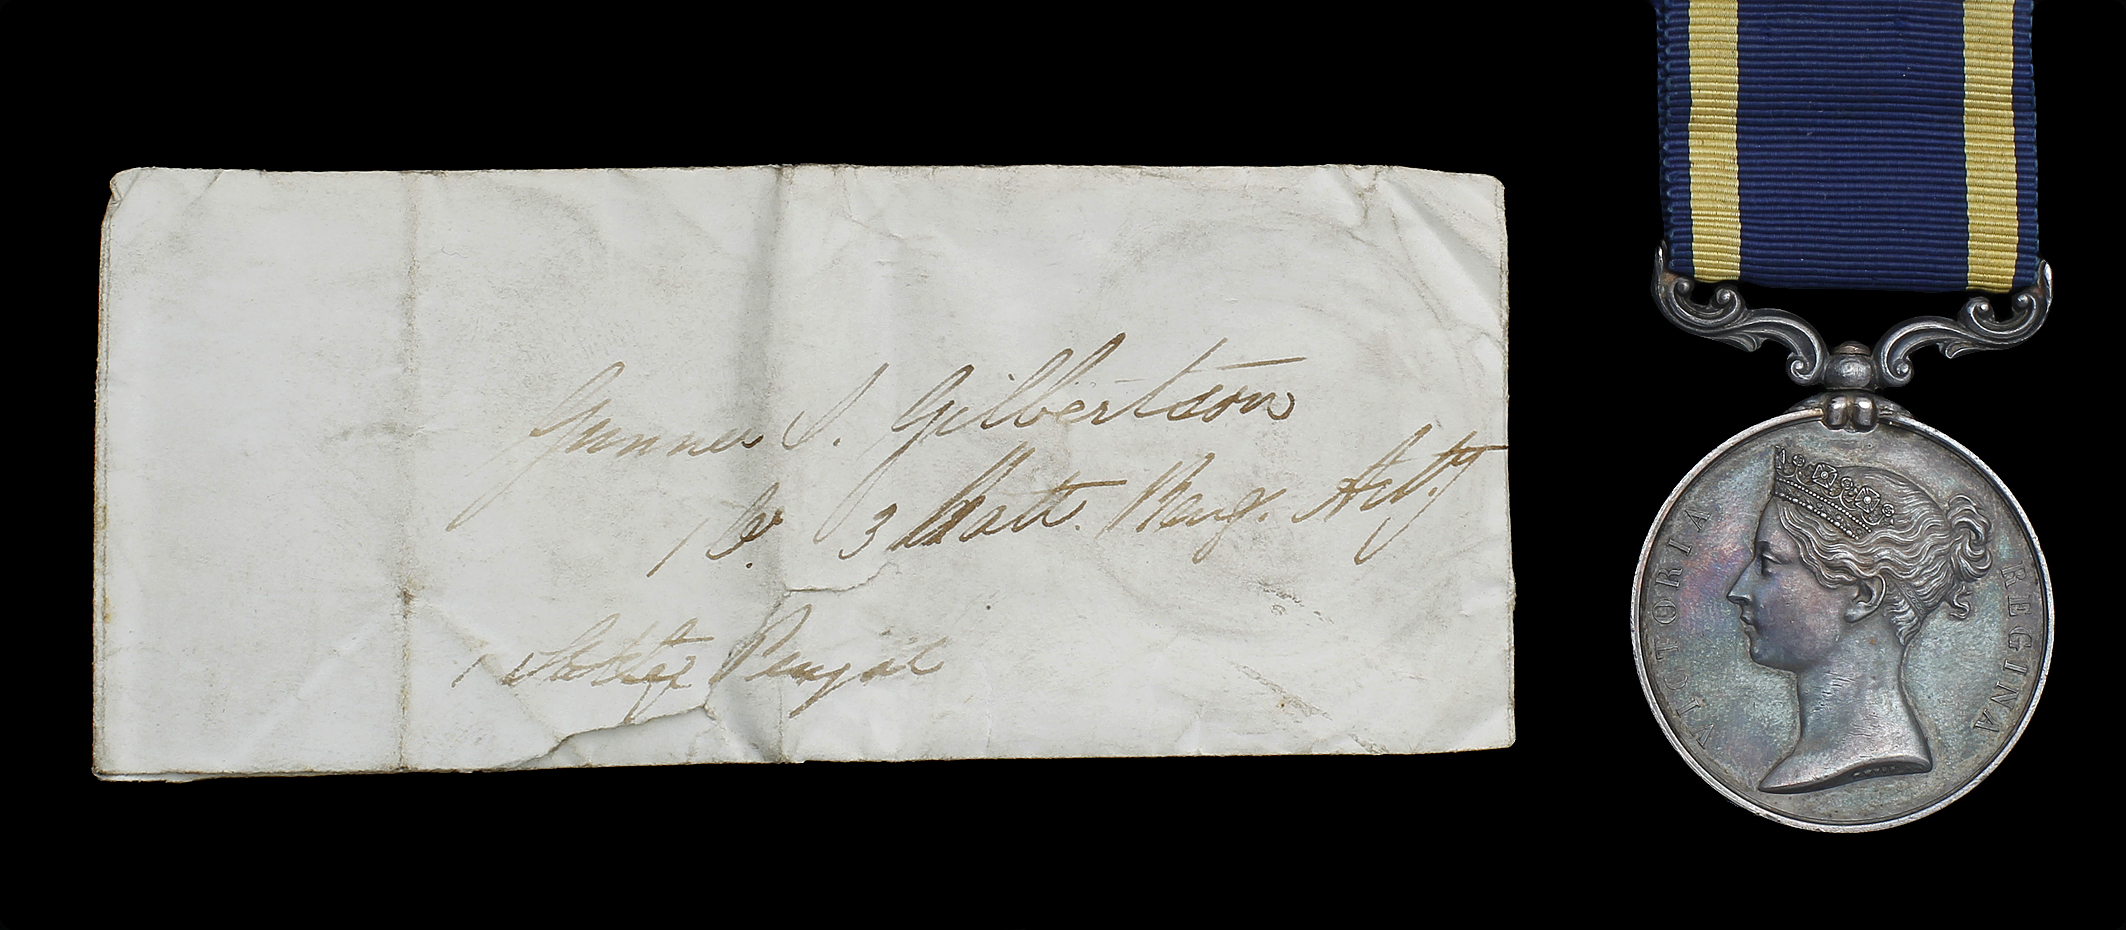 Gunner J. Gilbertson
3 Batt. Beng. Arty
Punjab
VICTORIA REGINA